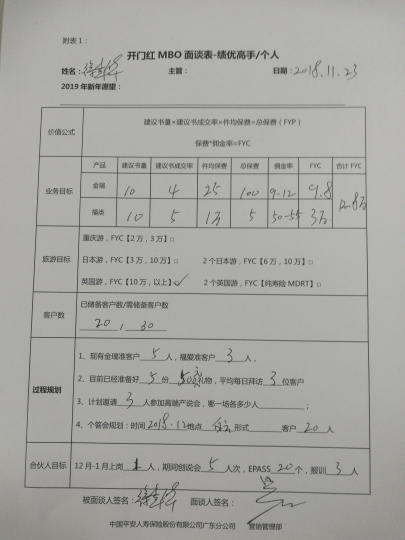 附表1：
开门红 MBO 面谈表-绩优高手/个人
姓名： 主管： 日期：2018.11.23
2019年新年愿望：
价值公式
建议书量×建议书成交率×件均保费=总保费（FYP）
保费*佣金率=FYC
业务目标
产品 建议书量 建议书成交率 件均保费 总保费 佣金率 FYC 合计FYC
金瑞 10 4 25 100 9-12 9.8
福类 10 5 1万 5 50-55 3万
12.8万
旅游目标
重庆游，FYC【2万，3万】□
日本游，FYC【3万，10万】□ 2个日本游，FYC【6万，10万】□
英国游，FYC【10万，以上】✓ 2个英国游，FYC【纯寿险 MDRT】□
客户数
已储备客户数/需储备客户数
20，30
过程规划
1、现有金瑞准客户 5 人，福爱准客户 3 人，
2、目前已经准备好 5 份 500元 礼物，平均每日拜访 3 位客户
3、计划邀请 3 人参加高端产说会，哪一场各多少人 ；
4、个答会规划：时间 2018.12 地点 形式 客户 20 人
合伙人目标
12月-1月上岗 1 人，期间创说会 5 人次，EPASS 20 个，报训 3 人
被面谈人签名： 面谈人签名：
中国平安人寿保险股份有限公司广东分公司 营销管理部